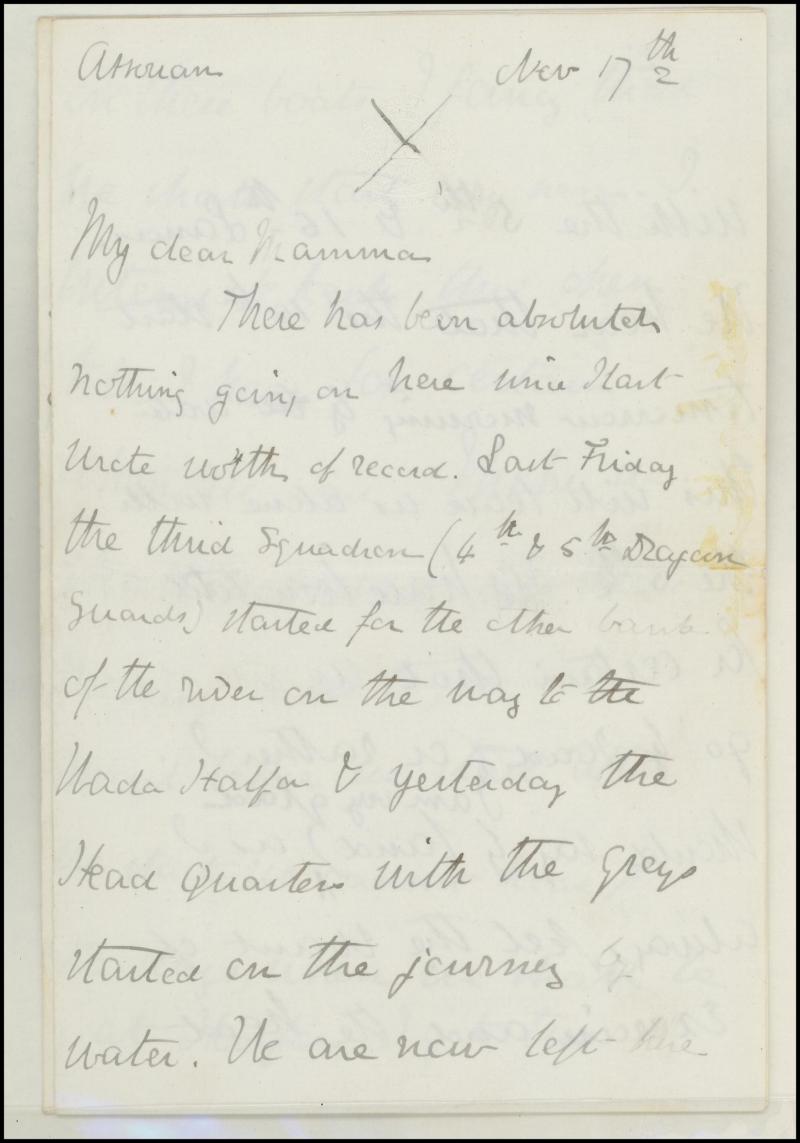 Assouan Nov 17th
My dear Mamma
There has been absolutely
nothing going on here since I last
wrote worth of record. Last Friday
the third Squadron (4th & 5th Dragoon
Guards) started for the other bank
of the river on the way to the
Wada Halfa & yesterday the
Head Quarters with the Greys
started on the journey by
water. We are now left here